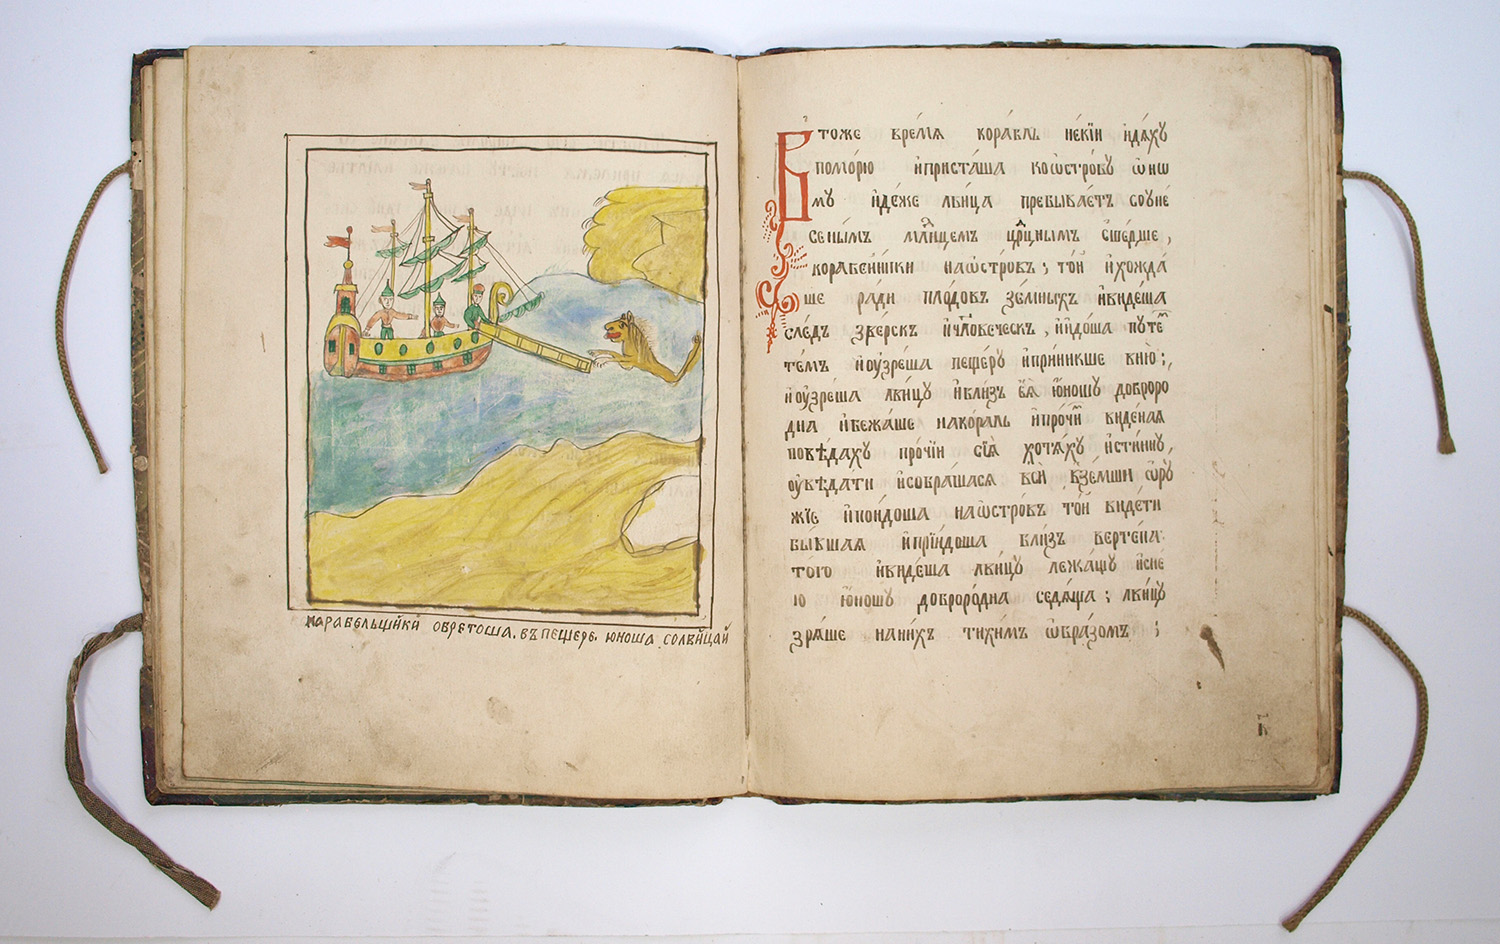 карабельщики обретоша. въ пещере. юноша солвицаи
Втоже время корабль некїи идяху
поморю ипристаша коѡстрову ѡном
му идеже лвица пребываетъ соуне
сеным младицем црским сшерше,
корабенники наѡстровъ; тои ихожда
ше ради плодовъ земныхъ ивидеша
следъ зверск ичловеческ, иидоша путе
тем иоузреша пещеру иприникше вню;,
иоузреша лвицу иблизъ ея юношу доброро
дна ибежаше накорабль ипрочїи виденая
поведаху прочїи сїя хотяху истинну,
оуведати исобрашася вси вземши ѡру
жїе ипоидоша наѡстровъ тои видети
бывшая иприидоша близъ вертепа
того ивидеша лвицу лежащу исне
ю юношу доброродна седяща; лвицу
зряше наних тихимъ ѡбразомъ ;